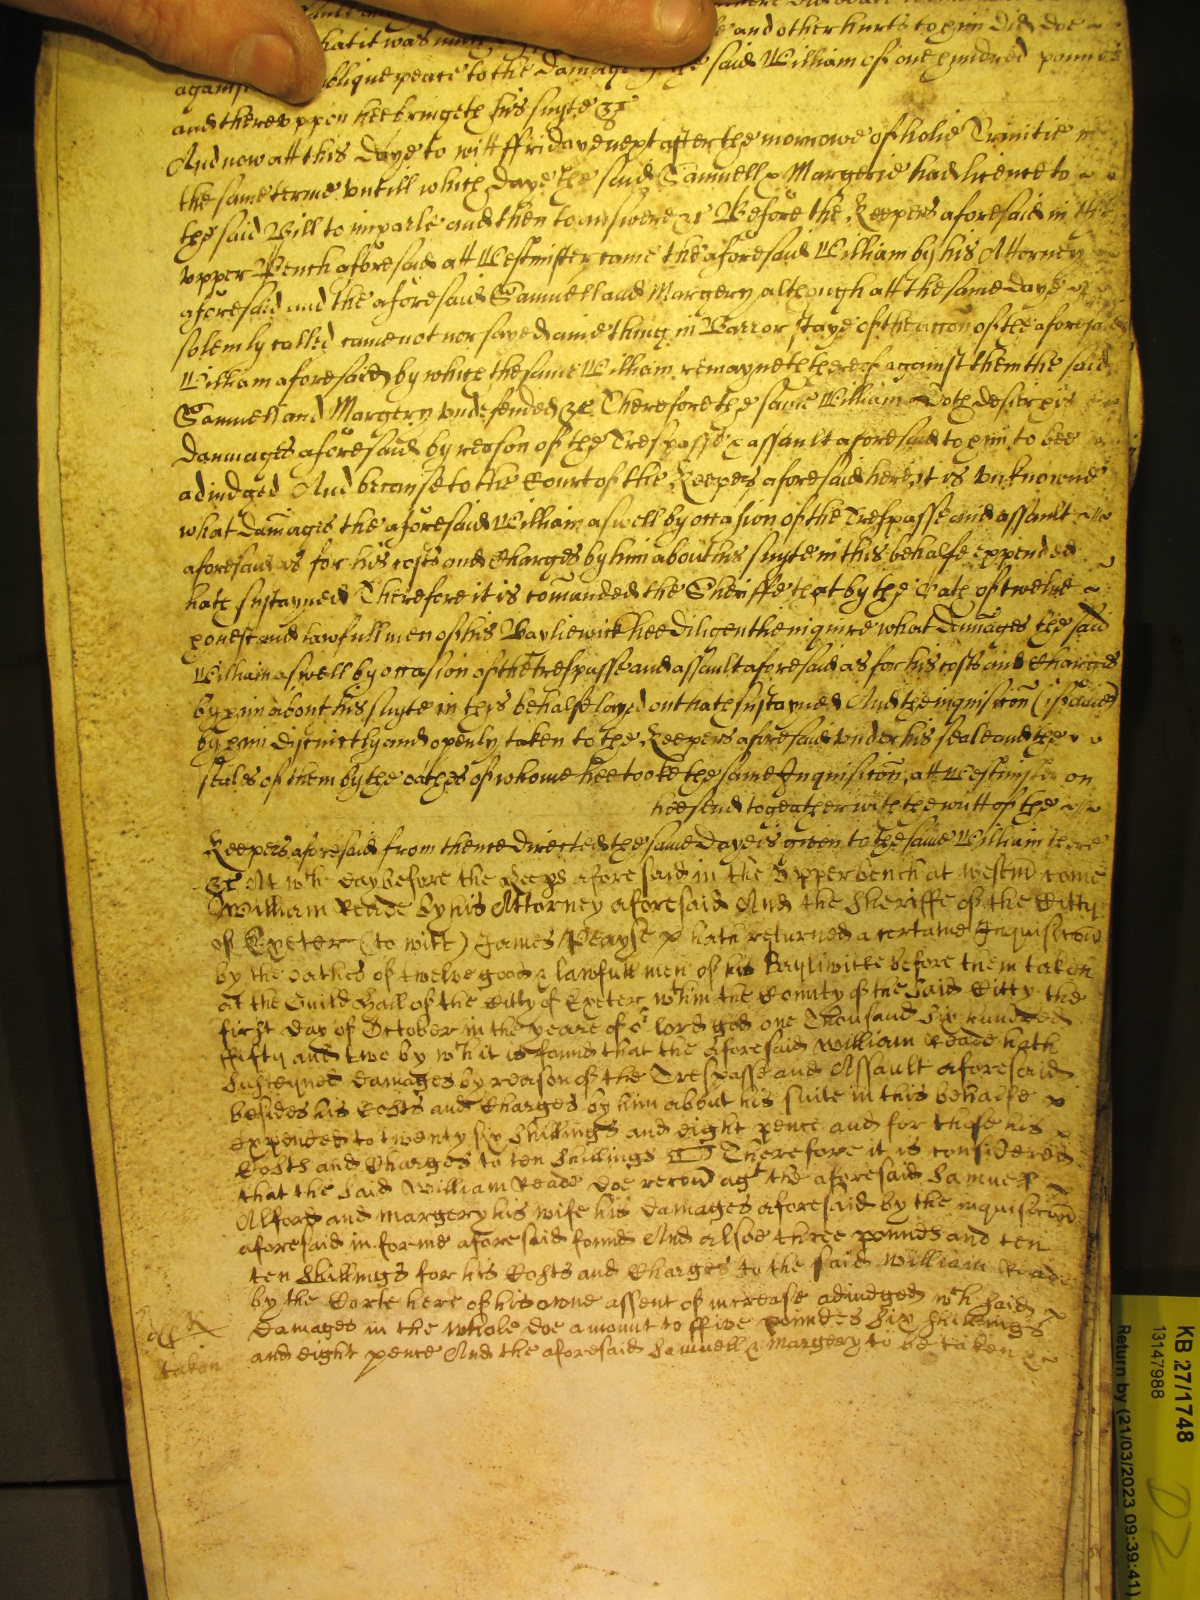 and other hurts to him did doe
against publique peace to the damage of the said William of one hundred pounds
and thereuppon hee bringeth his suyte &c
And now att this daye to witt ffridaye next after the morrowe of holie Trinitie in
the same terme vntill which daye the said Samuell & Margerie had licence to
the said Bill to imparle and then to answere &c Before the Keepers aforesaid in the
vpper Bench aforesaid att Westminster came the aforesaid William by his Attorney
aforesaid and the aforesaid Samuell and Margery although att the same daye
solemly called came not nor sayed anie thing in Barr or staye of the accon of the aforesaid
William aforesaid by which the same William remayneth thereof against them the said
Samuell and Margery vndefended &c Therefore the same William doth desier his
dammages aforesaid by reason of the Trespasse & assault aforesaid to him to bee
adiudged And because to the Court of the Keepers aforesaid here it is vnknowne
what damages the aforesaid William aswell by occasion of the Trespasse and assault
aforesaid as for his costs and charges by him about his suyte in this behalfe expended
hath sustayned Therefore it is comanded the Sheriffe that by the Oath of twelve
honest and lawfull men of his Bayliewick hee diligentlie inquire what damages the said
William aswell by occasion of the trespasse and assault aforesaid as for his costs and charges
by him about his suyte in this behalfe layed out hath sustayned And the inquisicon
by him distinctly and openly taken to the Keepers aforesaid vnder his seale and the
seales of them by the oathes of whome hee tooke the same Inquisicon, att Westminster on
hee send togeather with the writt of the
Keepers aforesaid from thence directed the same daye is given to the same William there
&c At wch day before the Keeps aforesaid in the Vpper bench at Westmr come
William Reade by his Attorney aforesaid And the Sheriffe of the Citty
of Exeter (to witt) James Pearse hath returned a certaine Inquisicon
by the oathes of twelve good & lawfull men of his Bayliwicke before them taken
at the Guild Hall of the Citty of Exeter wthin the County of the said Citty the
first day of October in the yeare of or lord god one Thousand six hundred
fifty and two by wch it is found that the aforesaid William Reade hath
susteyned damages by reason of the Trespasse and Assault aforesaid
besides his Costs and Charges by him about his suite in this behalfe
expended to twenty six shillings and eight pence and for those his
Costs and Charges to ten shillings Therefore it is considered
that the said William Reade doe recou agt the aforesaid Samuell
Alford and Margery his wife his damages aforesaid by the inquisicon
aforesaid in forme aforesaid found And alsoe three pounds and ten
ten shillings for his Costs and Charges to the said William Reade
by the Corte here of his owne assent of increase adiudged wch said
damages in the whole doe amount to ffive poundes six shillings
and eight pence And the aforesaid Samuell & Margery to be taken &c
taken
KB 27/1748
13147988
Return by (21/03/2023 09:39:41)
D2